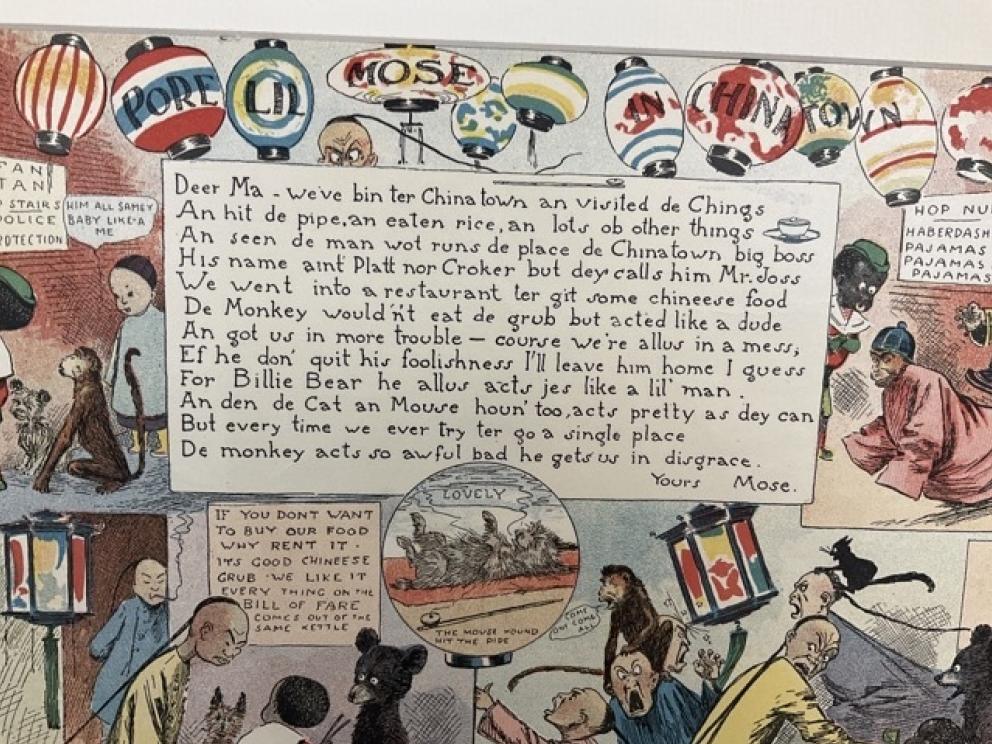 PORE LIL MOSE IN CHINATOWN
FAN
TAN
STAIRS
POLICE
PROTECTION
HIM ALL SAMEY
BABY LIKE-A
ME
Deer Ma - we've bin ter Chinatown an visited de Chings
An hit de pipe, an eaten rice, an lots ob other things
An seen de man wot runs de place de Chinatown big boss
His name aint Platt nor Croker but dey calls him Mr. Joss
We went into a restaurant ter git some chineese food
De Monkey would'n't eat de grub but acted like a dude
An got us in more trouble — course we're allus in a mess,
Ef he don' quit his foolishness I'll leave him home I guess
For Billie Bear he allus acts jes like a lil' man.
An den de Cat an Mouse houn' too, acts pretty as dey can
But every time we ever try ter go a single place
De monkey acts so awful bad he gets us in disgrace.
Yours Mose.
HOP
HABERDASH
PAJAMAS
PAJAMAS
PAJAMAS
IF YOU DONT WANT
TO BUY OUR FOOD
WHY RENT IT.
ITS GOOD CHINEESE
GRUB - WE LIKE IT
EVERY THING ON THE
BILL OF FARE
COMES OUT OF THE
SAME KETTLE
LOVELY
THE MOUSE HOUND
HIT THE PIPE
COME
ONE COME
ALL